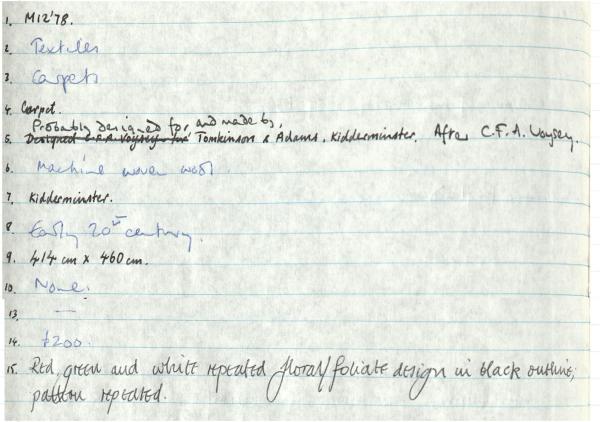 1. M12'78.
2. Textiles
3. Carpets
4. Carpet.
Probably designed for, and made by,
5. Designed C.F.A. Voysey for Tomkinson & Adams, Kidderminster. After C.F.A. Voysey.
6. Machine woven wool.
7. Kidderminster.
8. Early 20th century.
9. 414 cm x 460 cm.
10. None.
13. —
14. £200.
15. Red, green and white repeated floral/foliate design in black outline;
pattern repeated.